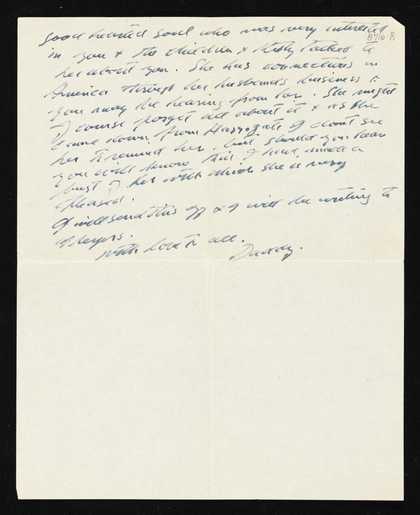 good hearted soul who was very interested
in you & the children & Kitty talked to
her about you. She has connections in
America through her husband's business &
you may be hearing from her. She might
of course forget all about it & as she
came down from Harrogate I don't see
her to remind her. But should you hear
you will know this. I have made a
bust of her with which she is very
pleased.
I will send this off & I will be writing to
Meyers.
With love to all.
Daddy.